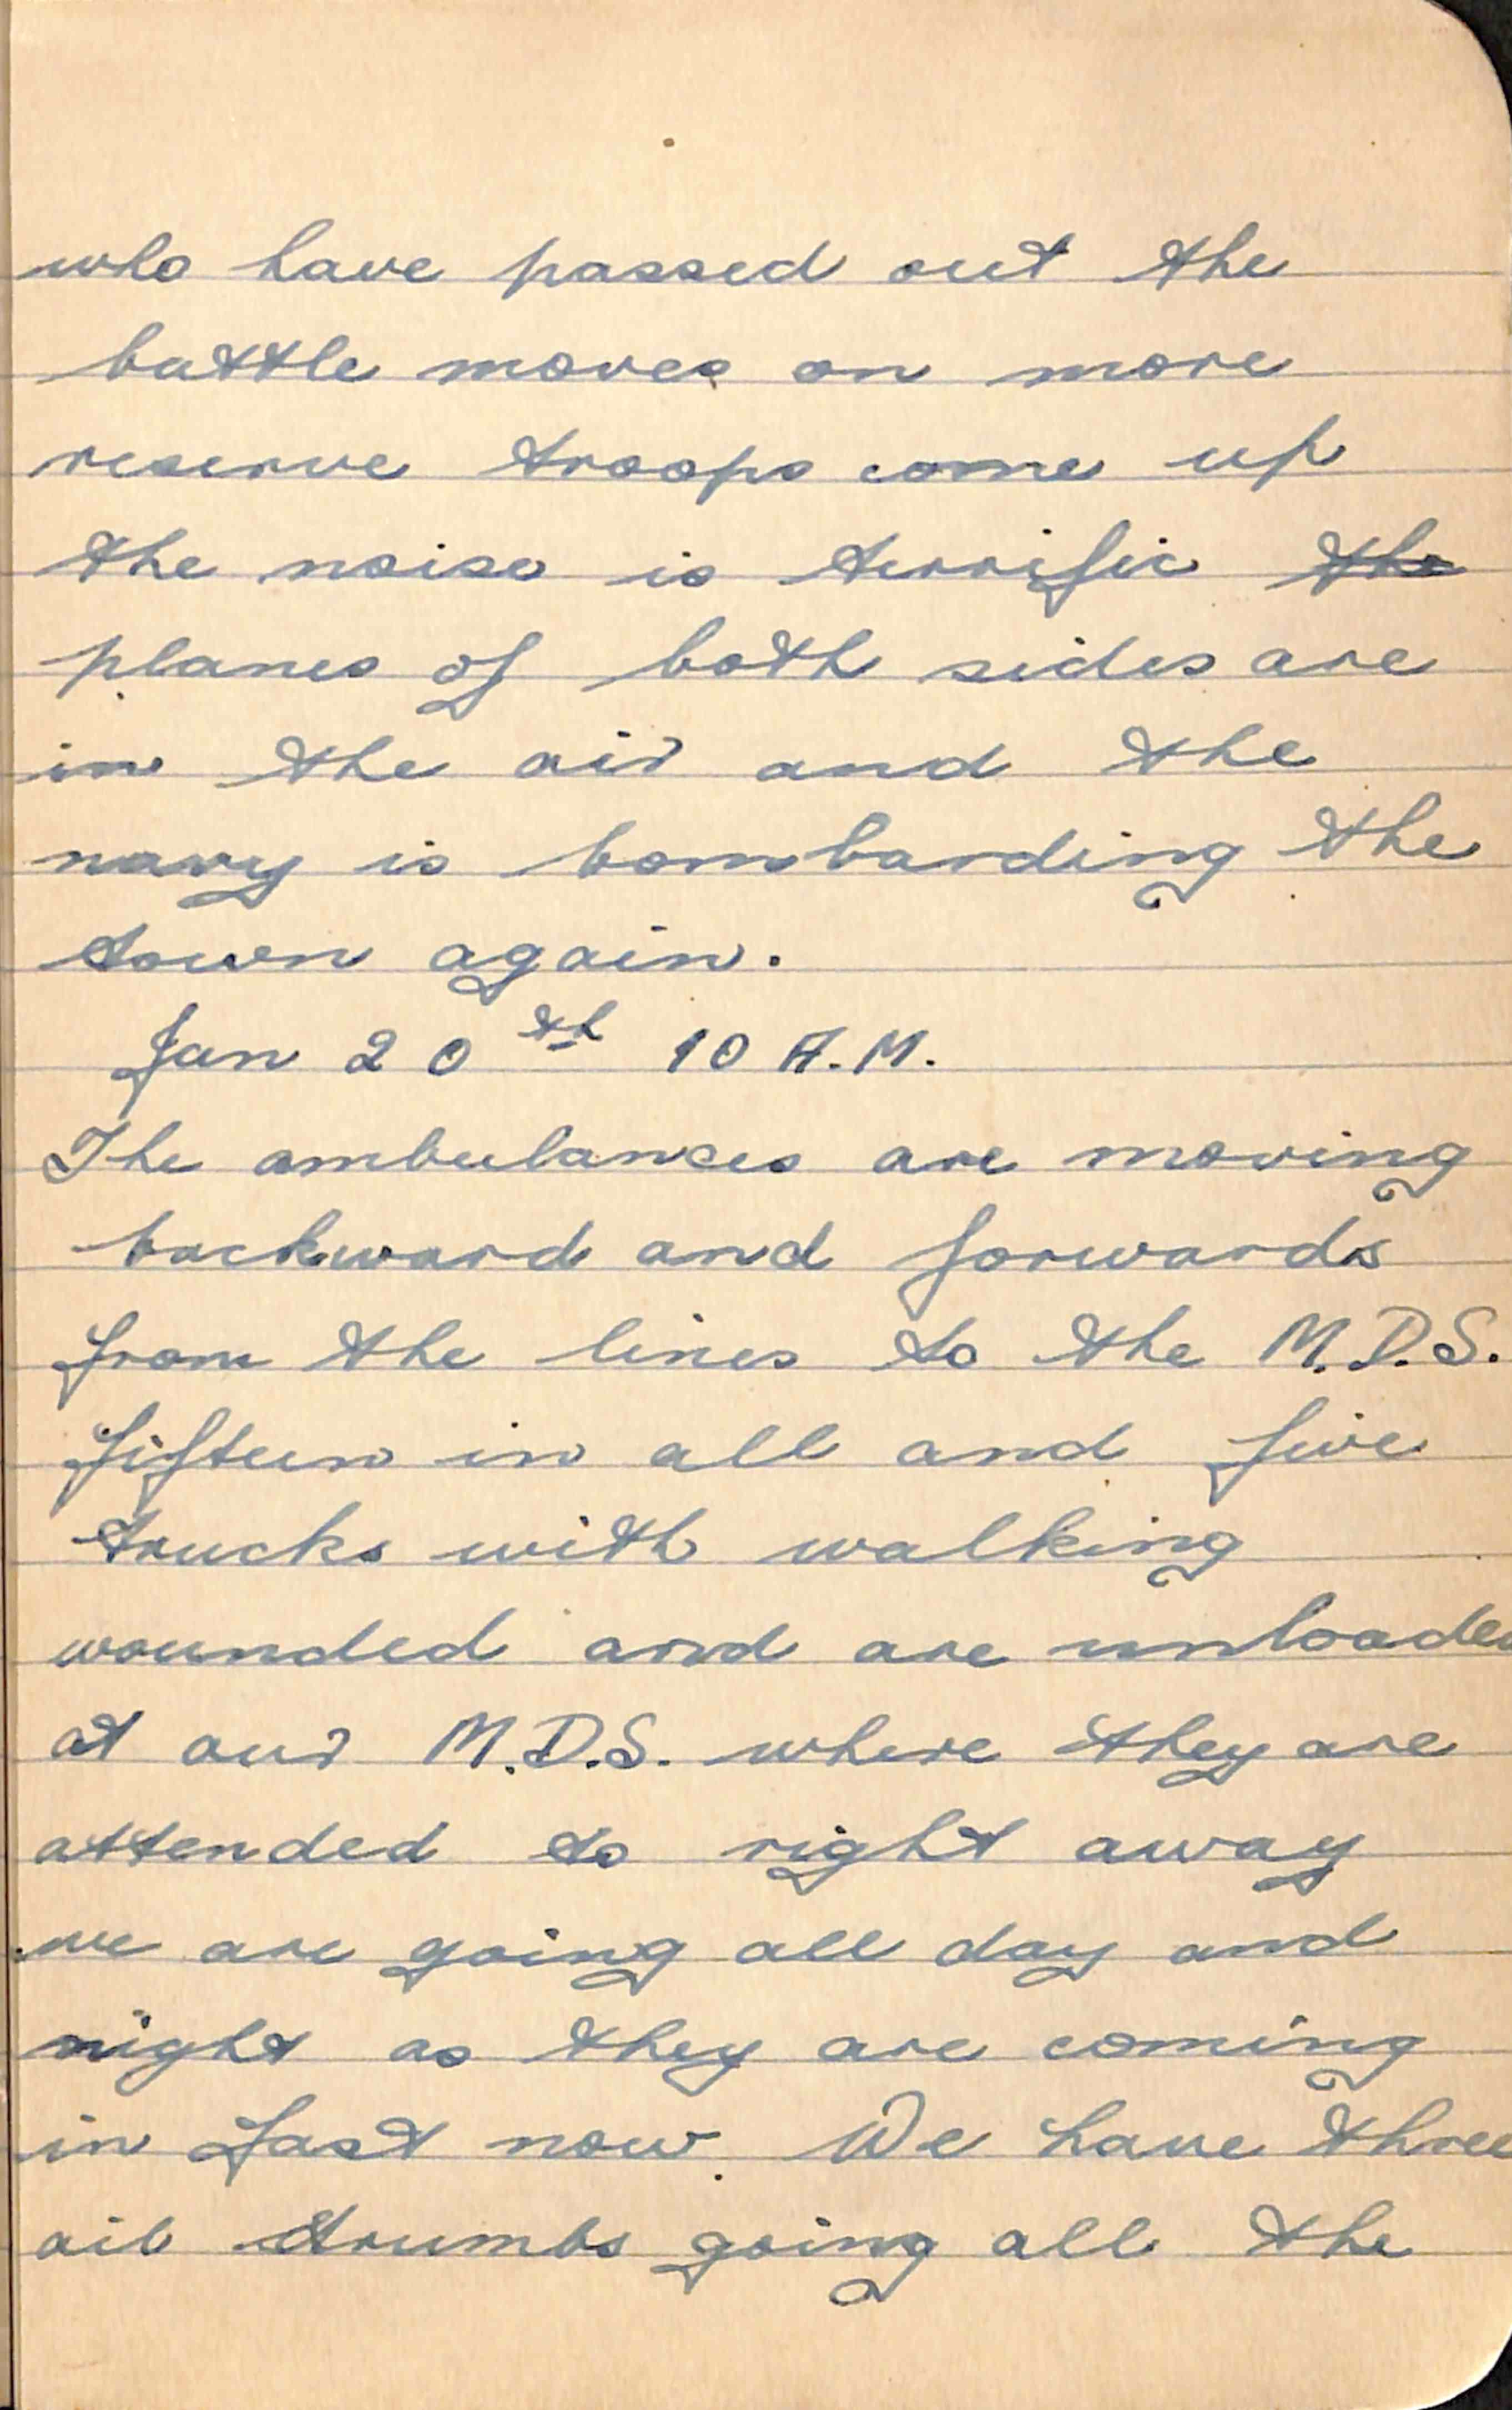 who have passed out the
battle moves on more
reserve troops come up
the noise is terrific the
planes of both sides are
in the air and the
navy is bombarding the
town again.
Jan 20th 10 A.M.
The ambulances are moving
backward and forwards
from the lines to the M.D.S.
fifteen in all and five
trucks with walking
wounded and are unloaded
at our M.D.S. where they are
attended to right away
we are going all day and
night as they are coming
in fast now. We have three
oil drumbs going all the